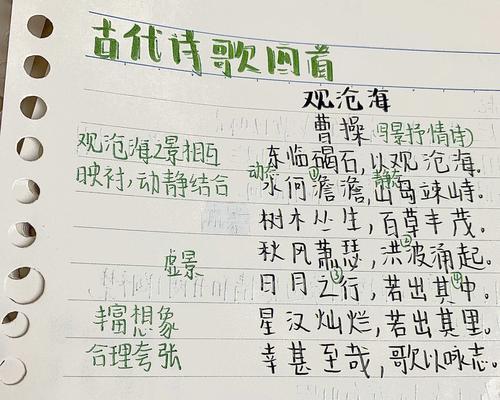 古代诗歌四首
观沧海
曹操 (写景抒情诗)
观沧海之景相互
映衬,动静结合
东临碣石,以观沧海。
动态 水何澹澹①,静态 山岛竦峙。
树木丛生,百草丰茂。
秋风萧瑟,洪波②涌起。
虚景
日月之③行,若出其④中。
丰富想象
星汉灿烂,若出其里。
合理夸张
幸甚至哉,歌以咏志。